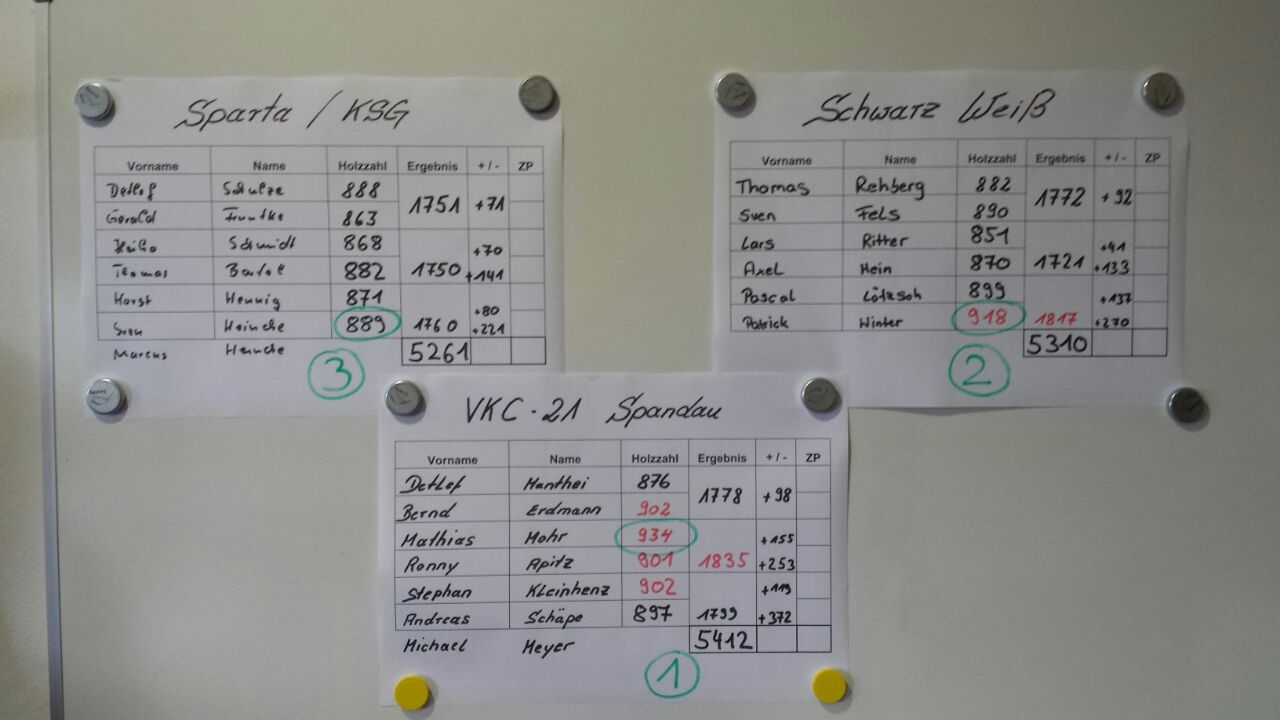 Sparta / KSG
Vorname Name Holzzahl Ergebnis + / - ZP
Detlef Schulze 888
1751 +71
Gerald 863
Heiko Schmidt 868
+70
Thomas Bartel 882 1750 +141
Horst Hennig 871
+80
Sven Heinche 889 1760 +221
Marcus Heinche 5261
3
Schwarz Weiß
Vorname Name Holzzahl Ergebnis + / - ZP
Thomas Rehberg 882
1772 + 92
Sven Fels 890
Lars Ritter 851
+41
Axel Hein 870 1721 +133
Pascal Lötzsch 899
+137
Patrick Winter 918 1817 +270
5310
2
VKC - 21 Spandau
Vorname Name Holzzahl Ergebnis + / - ZP
Detlef Manthei 876
1778 +98
Bernd Erdmann 902
Mathias Mohr 934
+155
Ronny Apitz 901 1835 +253
Stephan Kleinhenz 902
+119
Andreas Schäpe 897 1799 +372
Michael Meyer 5412
1